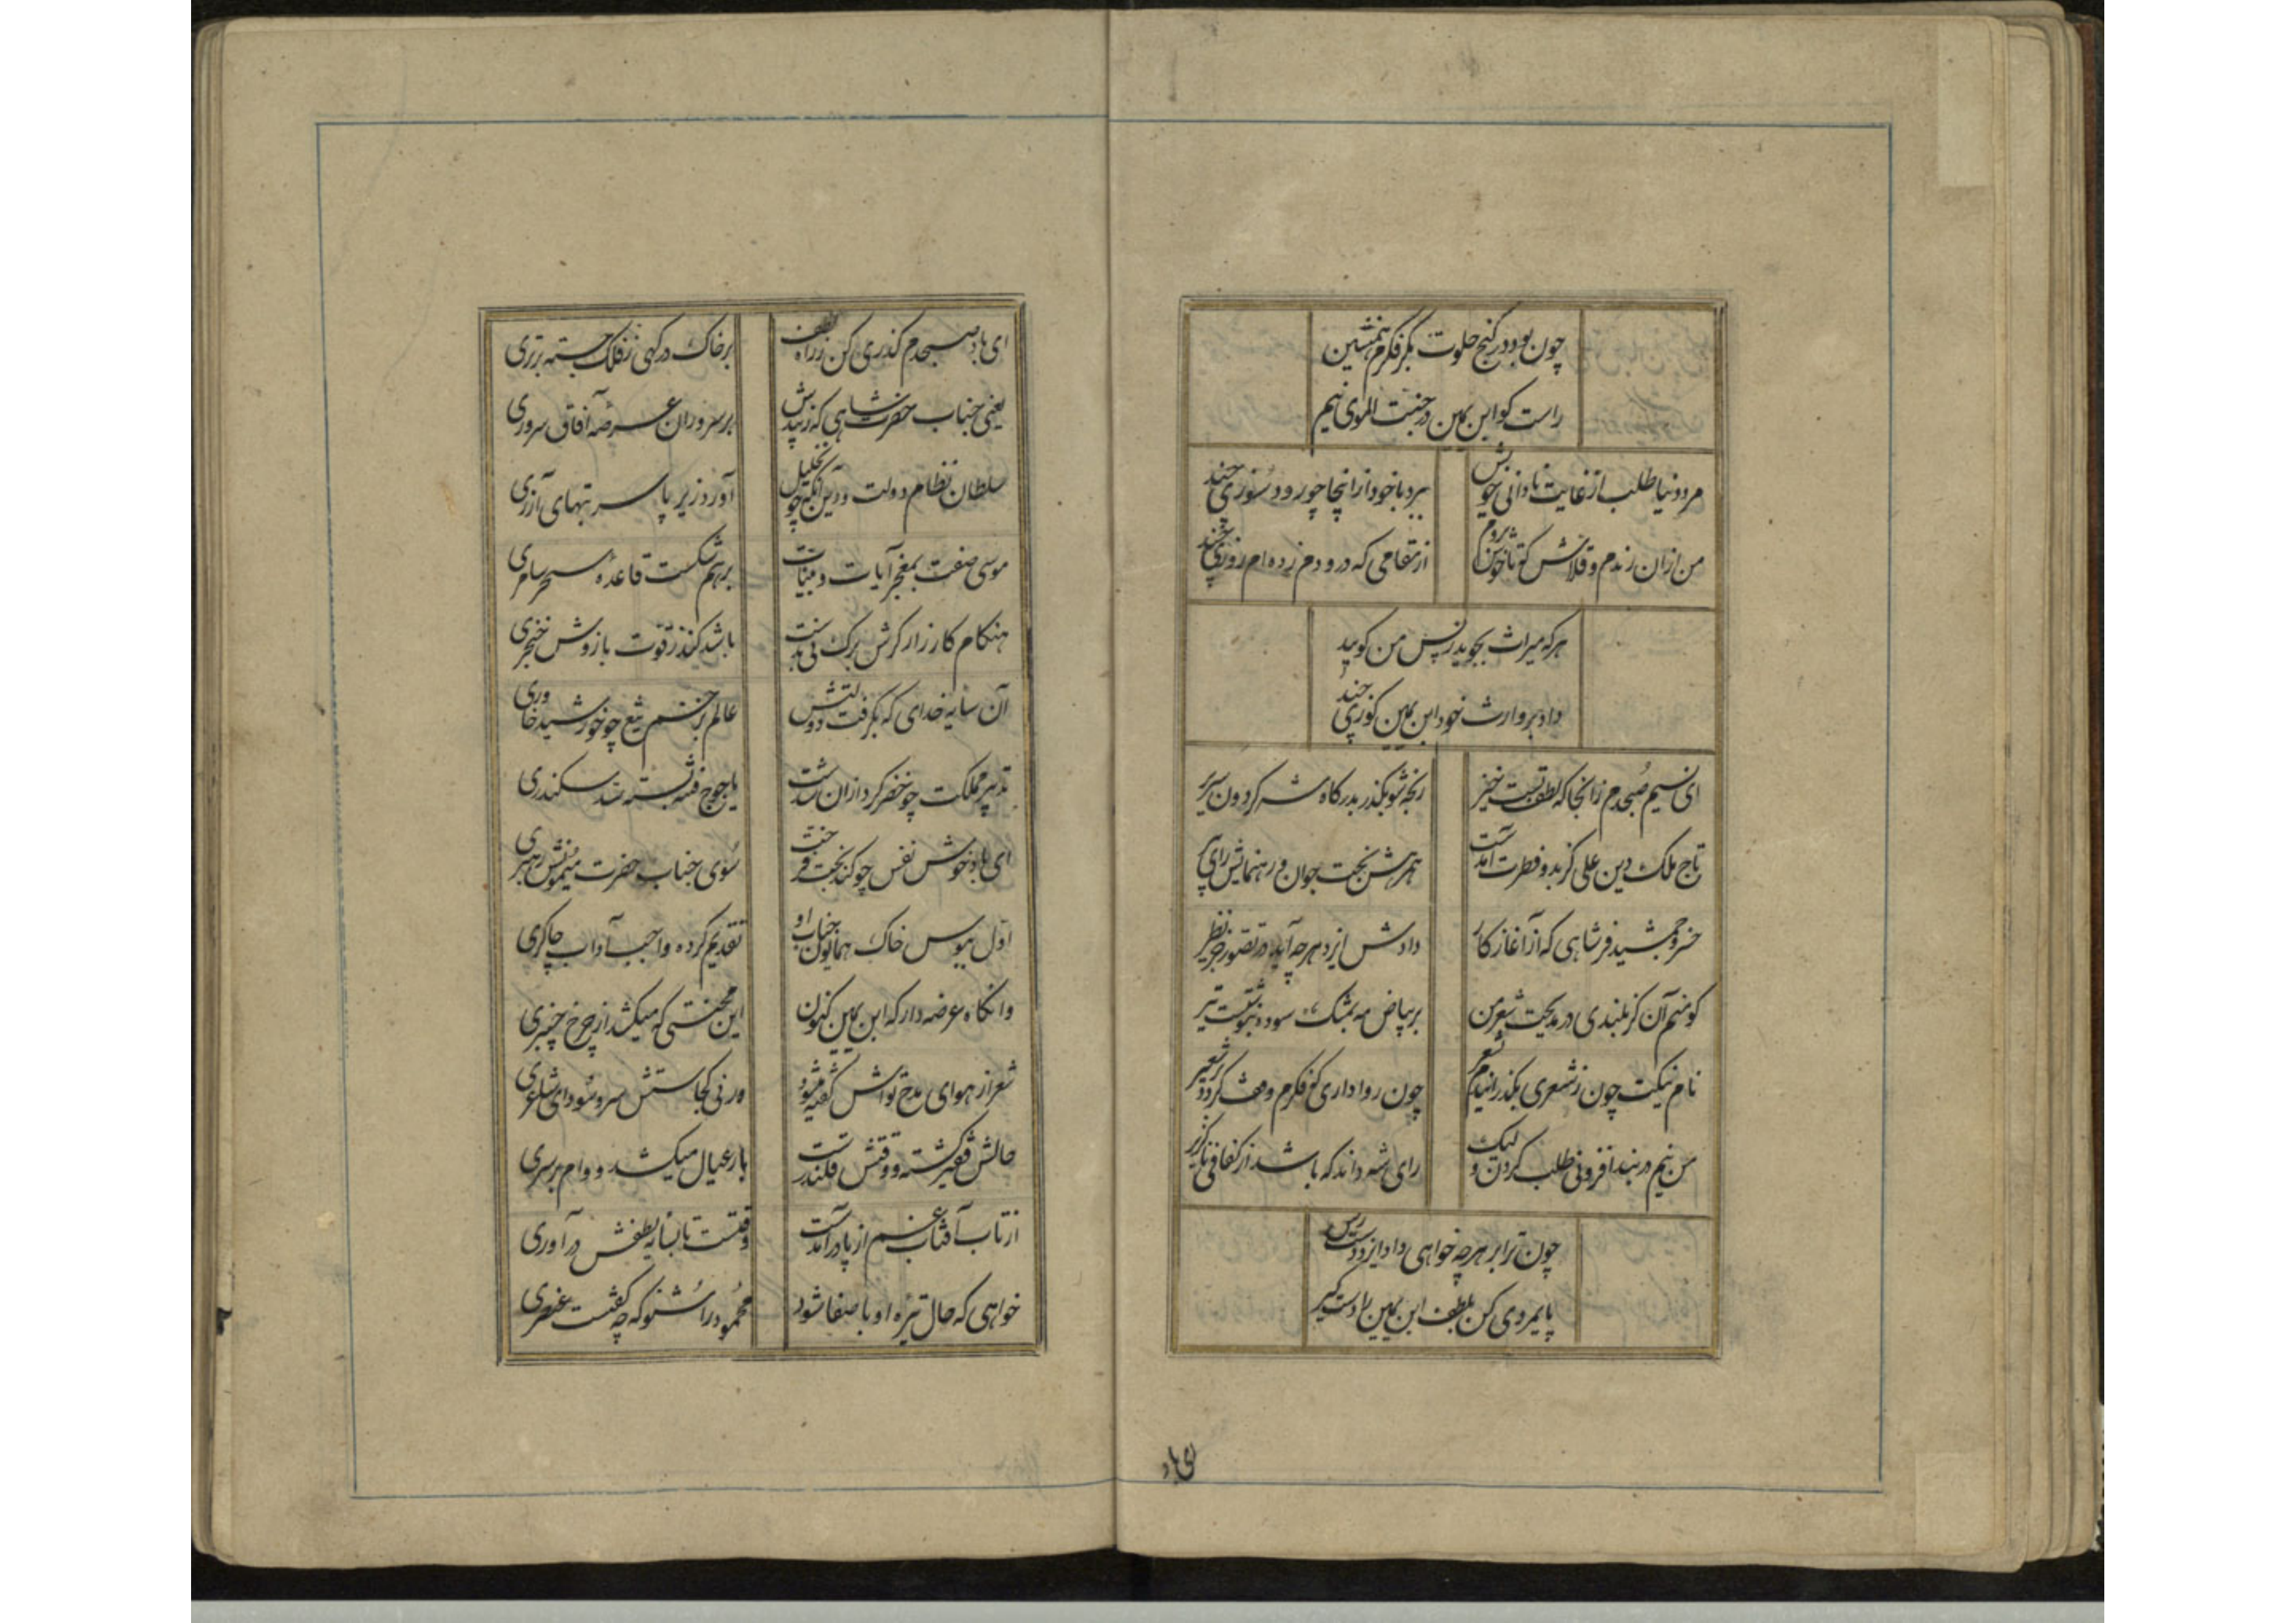 چون بود در کنج خلوت بکر فکرم همنشین
راست گو ابن یمین در جنت الماوی نیم
مرد دنیا طلب از غایت نادانی خویش
ببرد با خود از اینجا چو رود سوزی چند
من ازان رندم و قلاش که تا خوش بروم
از مقامی که درو دم زده‌ام روزی چند
هرکه میراث بجوید ز پس من گویید
داد بر وارث خود ابن یمین کوزی چند
ای نسیم صبحدم زانجا که لطف تست خیز
رنجه شو بگذر بدرگاه شه گردون سریر
تاج ملک و دین علی کز بدو فطرت آمدست
همرهش بخت جوان و رهنمایش رای پیر
خسرو جمشید فر شاهی که از آغاز کار
دادش ایزد هرچه آید در تصور جز نظیر
کو منم آن کز بلندی در مدیحت شعر من
بر بیاض مه بمشک سوده بنوشت تیر
نام نیکت چون ز شعری بگذرانیدم بشعر
چون رواداری که فکرم وقف گردد بر شعیر
من نیم در بند افزونی طلب کردن ولیک
رای شه داند که باشد از کفافی ناگزیر
چون ترا بر هرچه خواهی داد ایزد دست رس
پایمردی کن بلطف ابن یمین را دست گیر
ای باد
ای باد صبحدم گذری کن ز راه لطف
بر خاک درگهی ز فلک جسته برتری
یعنی جناب حضرت شاهی که زیبدش
بر سروران عرصه آفاق سروری
سلطان نظام دولت و دین آنکه چون خلیل
آورد زیر پا سر بتهای آزری
موسی صفت بمعجز آیات و بینات
برهم شکست قاعده سحر سامری
هنگام کارزار گرش برگ نی بدست
باشد کند ز قوت بازوش خنجری
آن سایه خدای که بگرفت دولتش
عالم بزخم تیغ چو خورشید خاوری
تدبیر مملکت چو خضر کرد ازان شدست
یاجوج فتنه بسته سد سکندری
ای باد خوش نفس چو کند بخت فرخت
سوی جناب حضرت میمونش رهبری
اول ببوس خاک همایون جناب او
تقدیم کرده واجب آداب چاکری
وانگاه عرضه دار که ابن یمین کنون
این محنتی که میکشد از چرخ چنبری
شعر از هوای مدح تواش گفته میشود
ورنی کجاستش سر و سودای شاعری
حالش فقیر گشته و وقتش قلندرست
بار عیال میکشد و وام بر سری
از تاب آفتاب غم از پا در آمدست
وقتست تا بسایه لطفش در آوری
خواهی که حال تیره او با صفا شود
محمود را شنو که چه گفتست عنصری